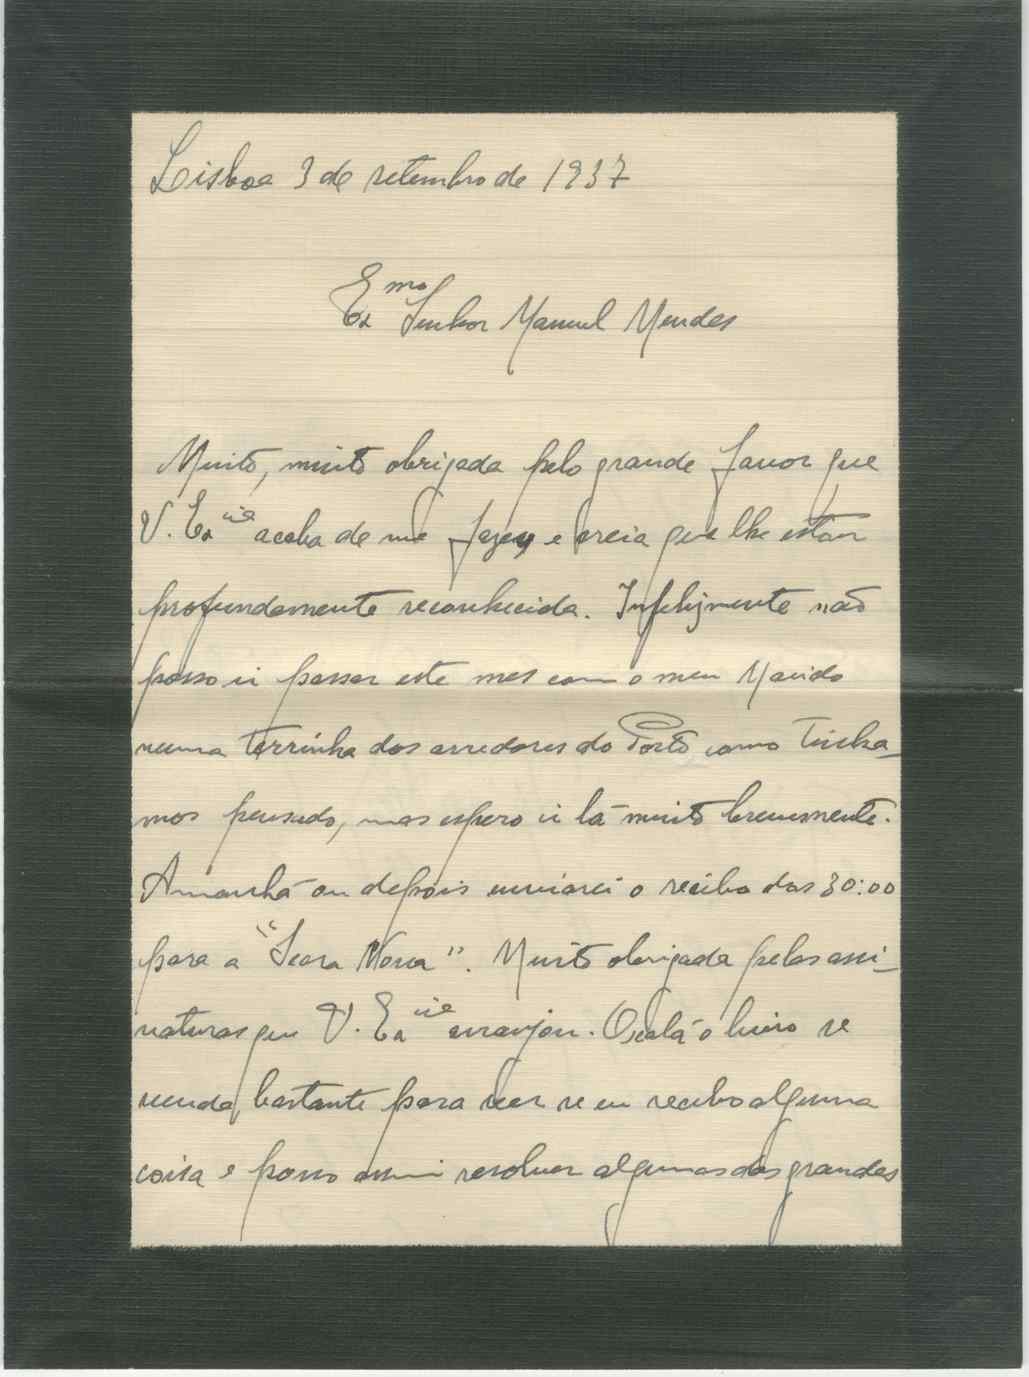 Lisboa 3 de setembro de 1937
Ex.mo Senhor Manuel Mendes
Muito, muito obrigada pelo grande favor que
V. Ex.cia acaba de me fazer e creia que lhe estou
profundamente reconhecida. Infelizmente não
posso ir passar este mes com o meu Marido
numa terrinha dos arredores do Porto, como tinha-
mos pensado, mas espero ir lá muito brevemente.
Amanhã ou depois enviarei o recibo dos 30:00
para a "Seara Nova". Muito obrigada pelas assi-
naturas que V. Ex.cia arranjou. Oxalá o livro se
venda bastante para ver se eu recebo alguma
coisa e posso assim resolver algumas das grandes